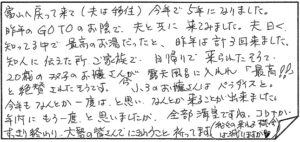 富山へ戻って来て(夫は移住)今年で5年になりました。
昨年のGOTOのお陰で、夫と共に来てみました。夫曰く、
知ってる中で最高のお湯だったと、昨年は計3回来ました。
知人に伝えた所ご家族で、日帰りで来られたそうで、
20歳の双子のお嬢さんが露天風呂に入れれ「最高!!」
と絶賛されたそうです。小3のお嬢さんはペラダイスと。
今年もなんとか一度は、と思い なんとか来ることが出来ました。
年内に もう一度、と思いましたが、全部満室ですね。コロナが
すっきり終わり、大勢の皆さんでにぎわうことを祈ってます